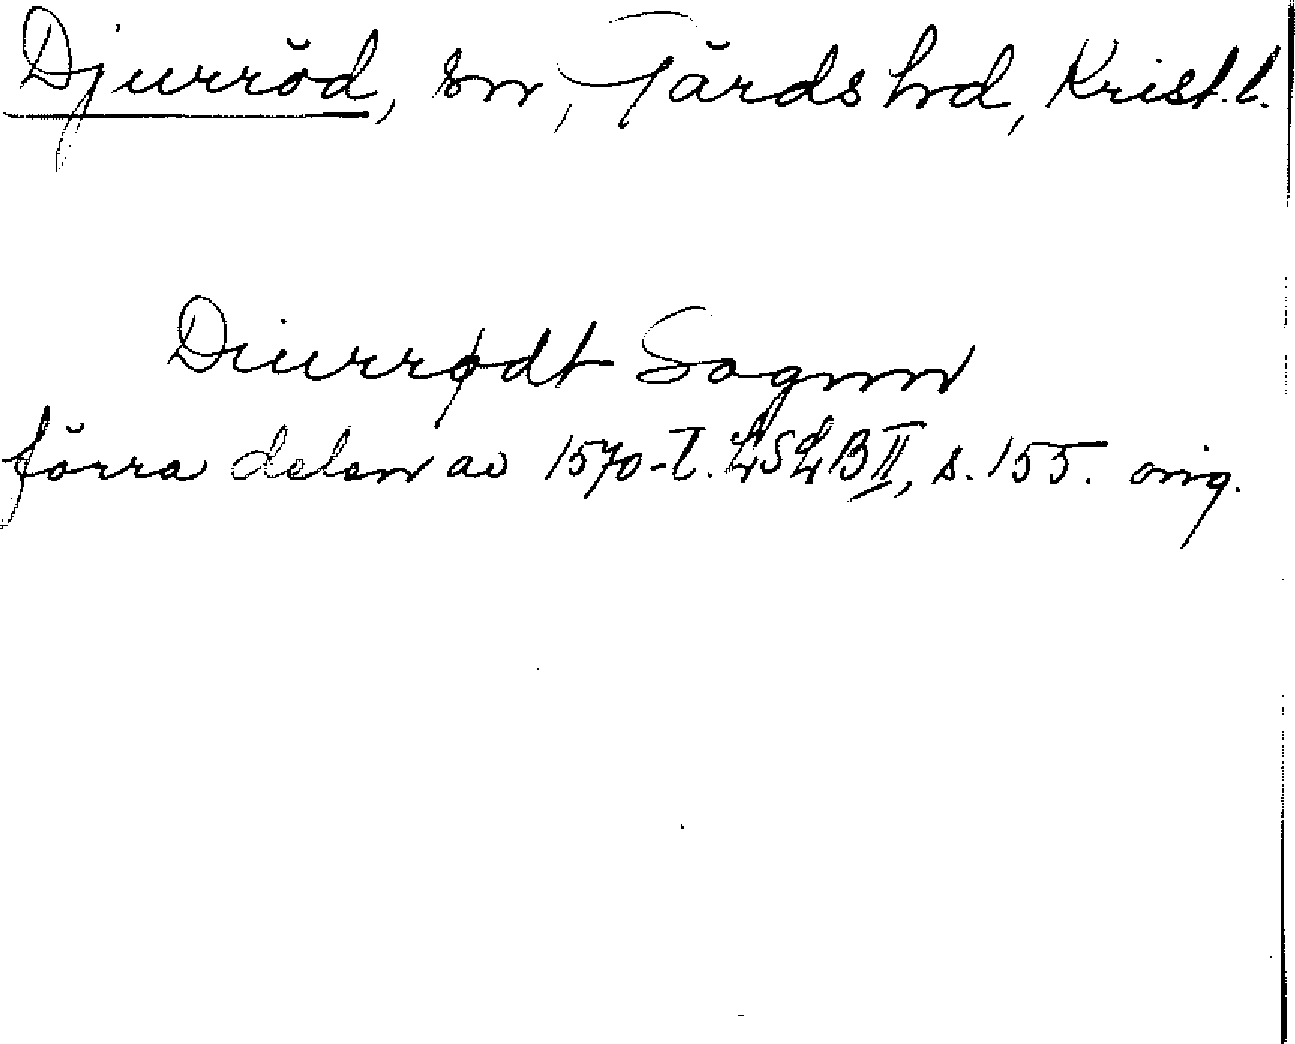 Djurröd, sn, Gärds hd, Krist. l.
Diurrødt Sognn
förra delen av 1570-t. LSLB II, s. 155. orig.